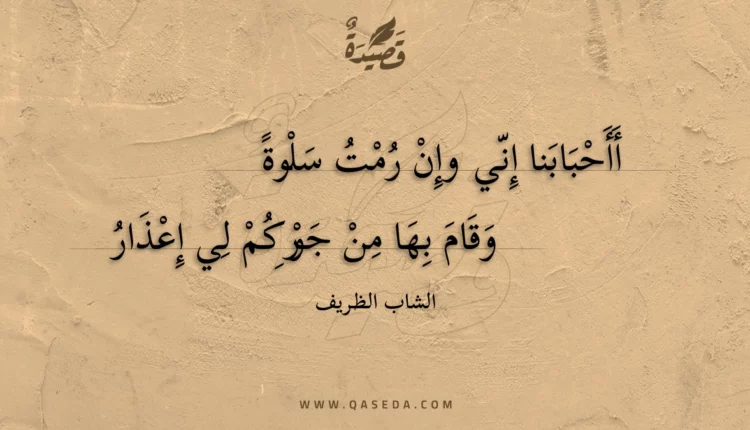 قَصِيْدَةٌ
أَأَحْبَابَنا إِنّي وإِنْ رُمْتُ سَلْوةً
وَقَامَ بِهَا مِنْ جَوْرِكُمْ لِي إِعْذَارُ
الشاب الظريف
WWW.QASEDA.COM